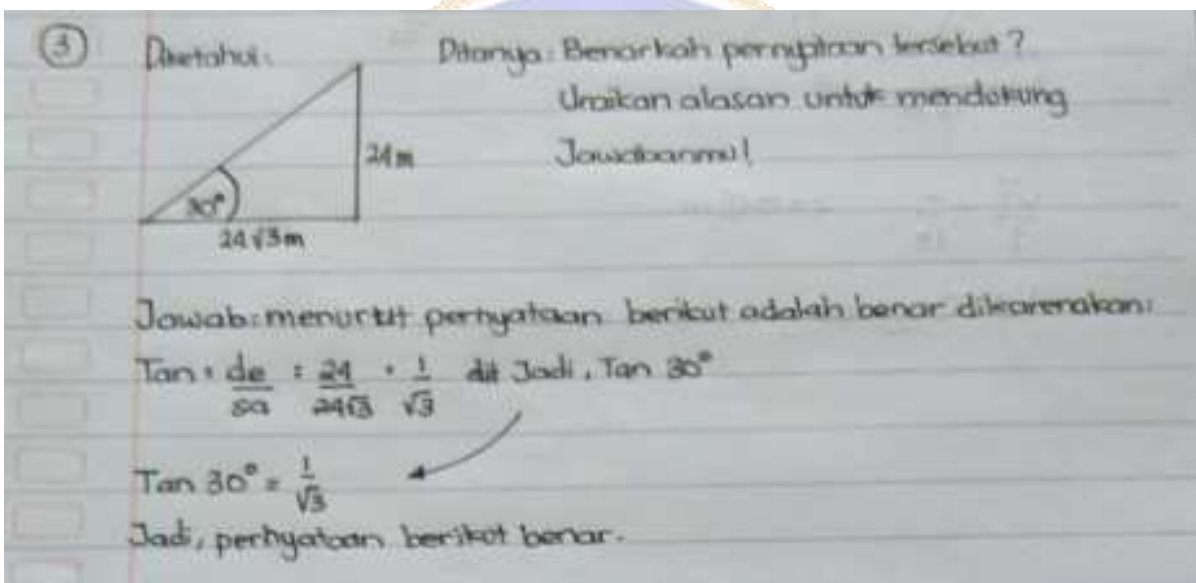 3 Diketahui: Ditanya: Benarkah pernyataan tersebut?
Uraikan alasan untuk mendukung
Jawabanmu!
24 m
30°
24√3 m
Jawab: menurut pernyataan berikut adalah benar dikarenakan:
Tan = de/sa = 24/24√3 = 1/√3 Jadi, Tan 30°
Tan 30° = 1/√3
Jadi, pernyataan berikut benar.